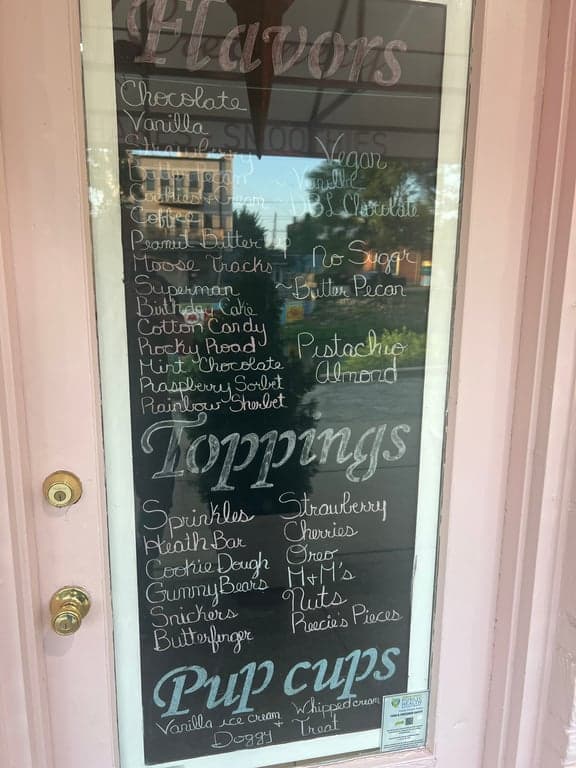 Flavors
Chocolate
Vanilla
SMOOTHIES
Strawberry
Butter Pecan
Cookies + Cream
Coffee
Peanut Butter
Moose Tracks
Superman
Birthday Cake
Cotton Candy
Rocky Road
Mint Chocolate
Raspberry Sorbet
Rainbow Sherbet
Vegan
~ Vanilla
DBL Chocolate
No Sugar
~Butter Pecan
Pistachio
Almond
Toppings
Sprinkles
Heath Bar
Cookie Dough
Gummy Bears
Snickers
Butterfinger
Strawberry
Cherries
Oreo
M+M's
Nuts
Reecie's Pieces
Pup cups
Vanilla ice cream + Whipped cream
Doggy Treat